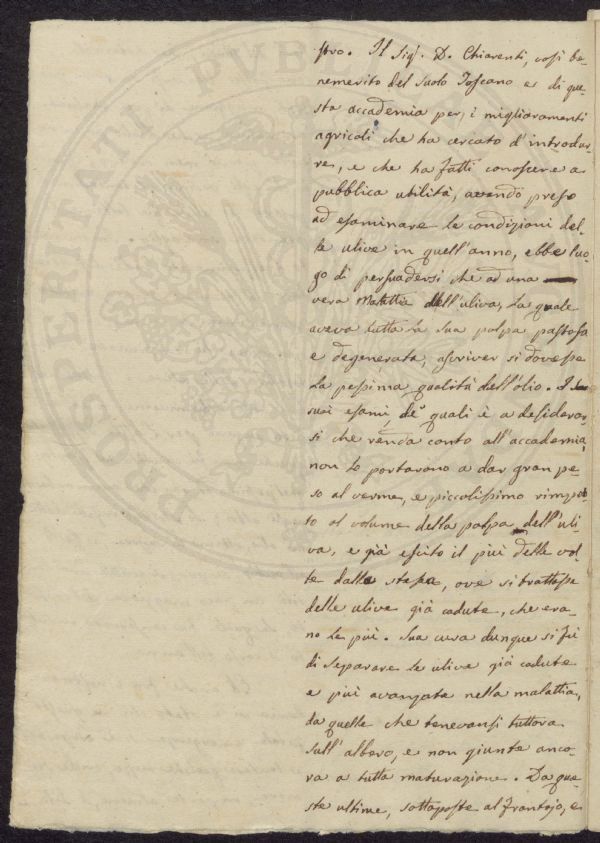 stro. Il Sig.r D. Chiarenti, così be-
nemerito del suolo Toscano e di que-
sta accademia per i miglioramenti
agricoli che ha cercato d'introdur-
re, e che ha fatti conoscere a
pubblica utilità, avendo preso
ad esaminare le condizioni del-
le ulive in quell'anno, ebbe luo-
go di persuadersi che ad una
vera malattia dell'uliva, la quale
aveva tutta la sua polpa pastosa
e degenerata, ascriver si dovesse
la pessima qualità dell'olio. I
suoi esami, de' quali è a desiderar-
si che renda conto all'accademia,
non lo portarono a dar gran pe-
so al verme, e piccolissimo rimpet-
to al volume della polpa dell'uli-
va, e già escito il più delle vol-
te dalla stessa, ove si trattasse
delle ulive già cadute, che era-
no le più. Sua cura dunque si fù
di separare le ulive già cadute
e più avanzate nella malattia,
da quelle che tenevansi tuttora
sull'albero, e non giunte anco-
ra a tutta maturazione. Da que-
ste ultime, sottoposte al frantojo, e
PROSPERITATI PVBLI